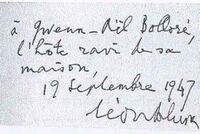 à Gwenn-Aël Bolloré,
l'hôte ravi de sa
maison,
19 Septembre 1947
Léon Blum